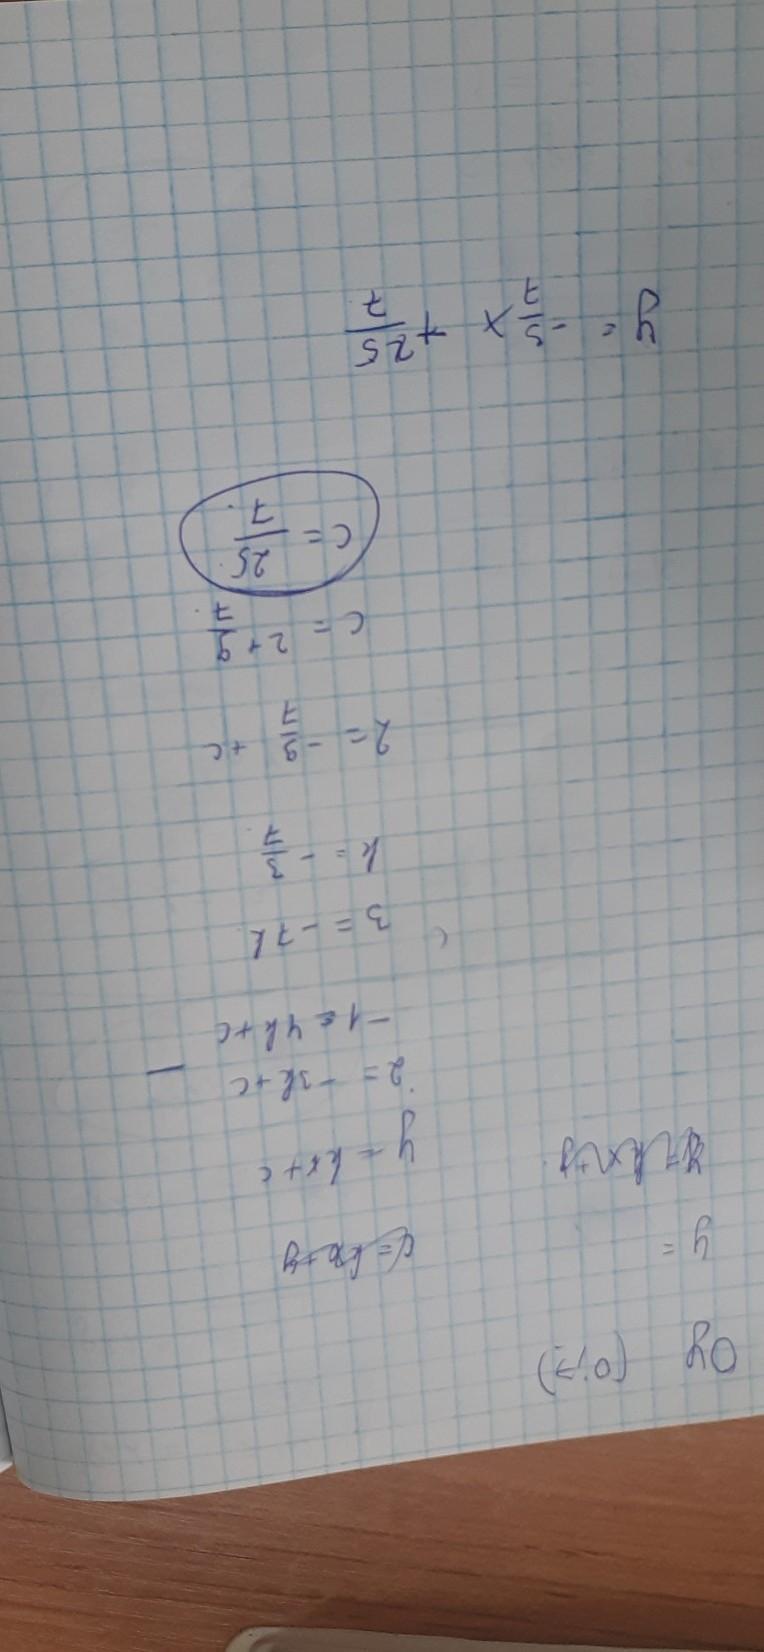 Oy (0;?)
y =
y = kx+c
2 = -3k+c
-1 = 4k+c
3 = -7k
k = -3/7
2 = -9/7 +c
c = 2+9/7
c = 25/7
y = -5/7x + 25/7